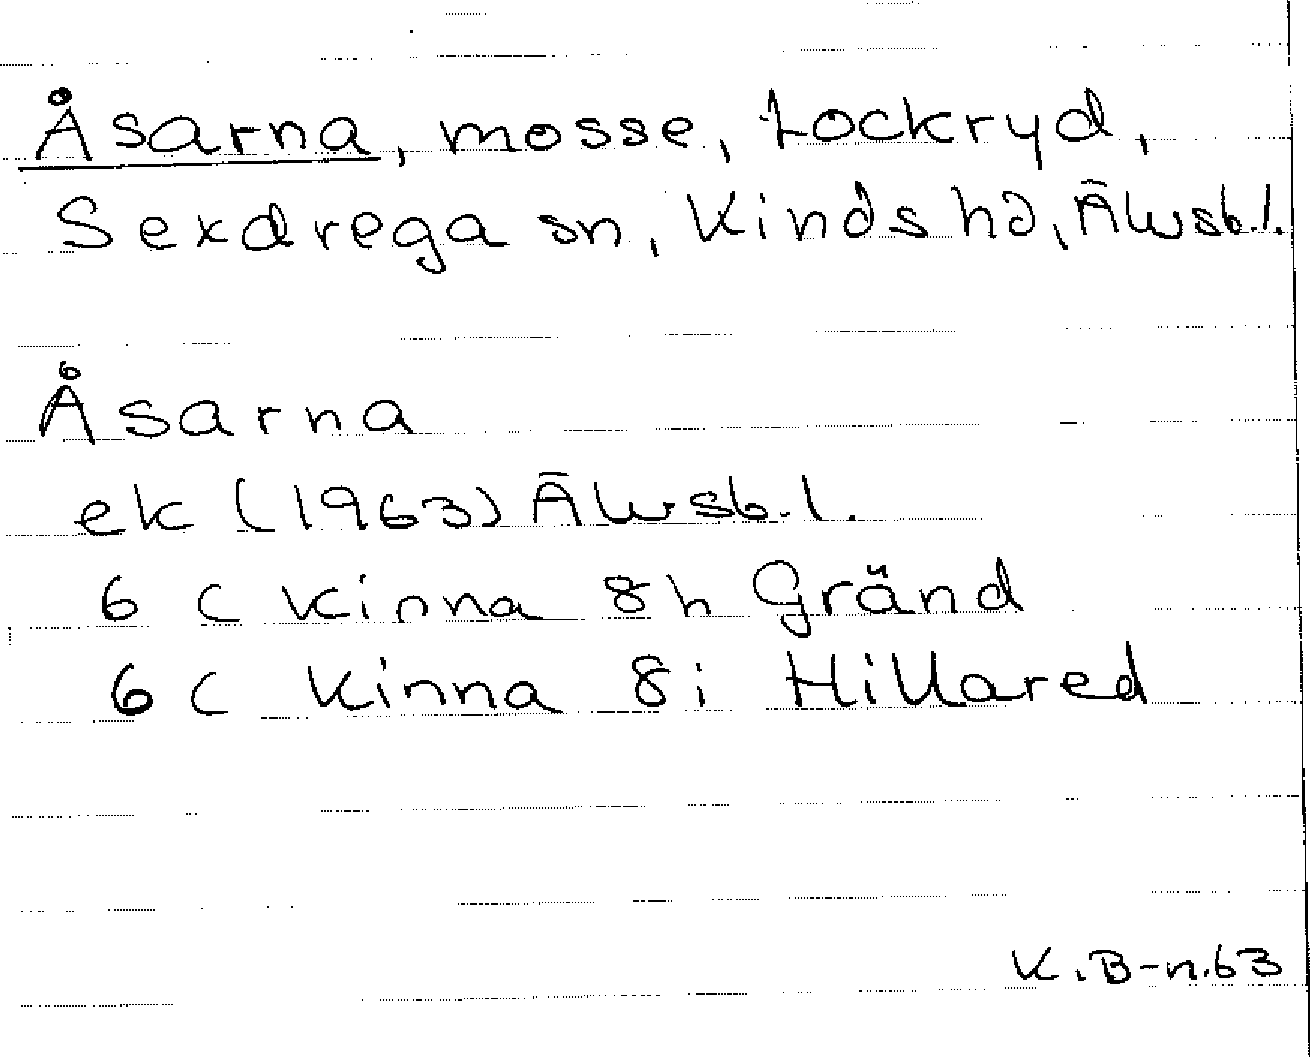 Åsarna, mosse, Lockryd,
Sexdrega sn, Kinds hd, Älvsb.l.
Åsarna
ek (1963) Älvsb.l.
6 C Kinna 8h Gränd
6 C Kinna 8i Hillared
K.B-n.63